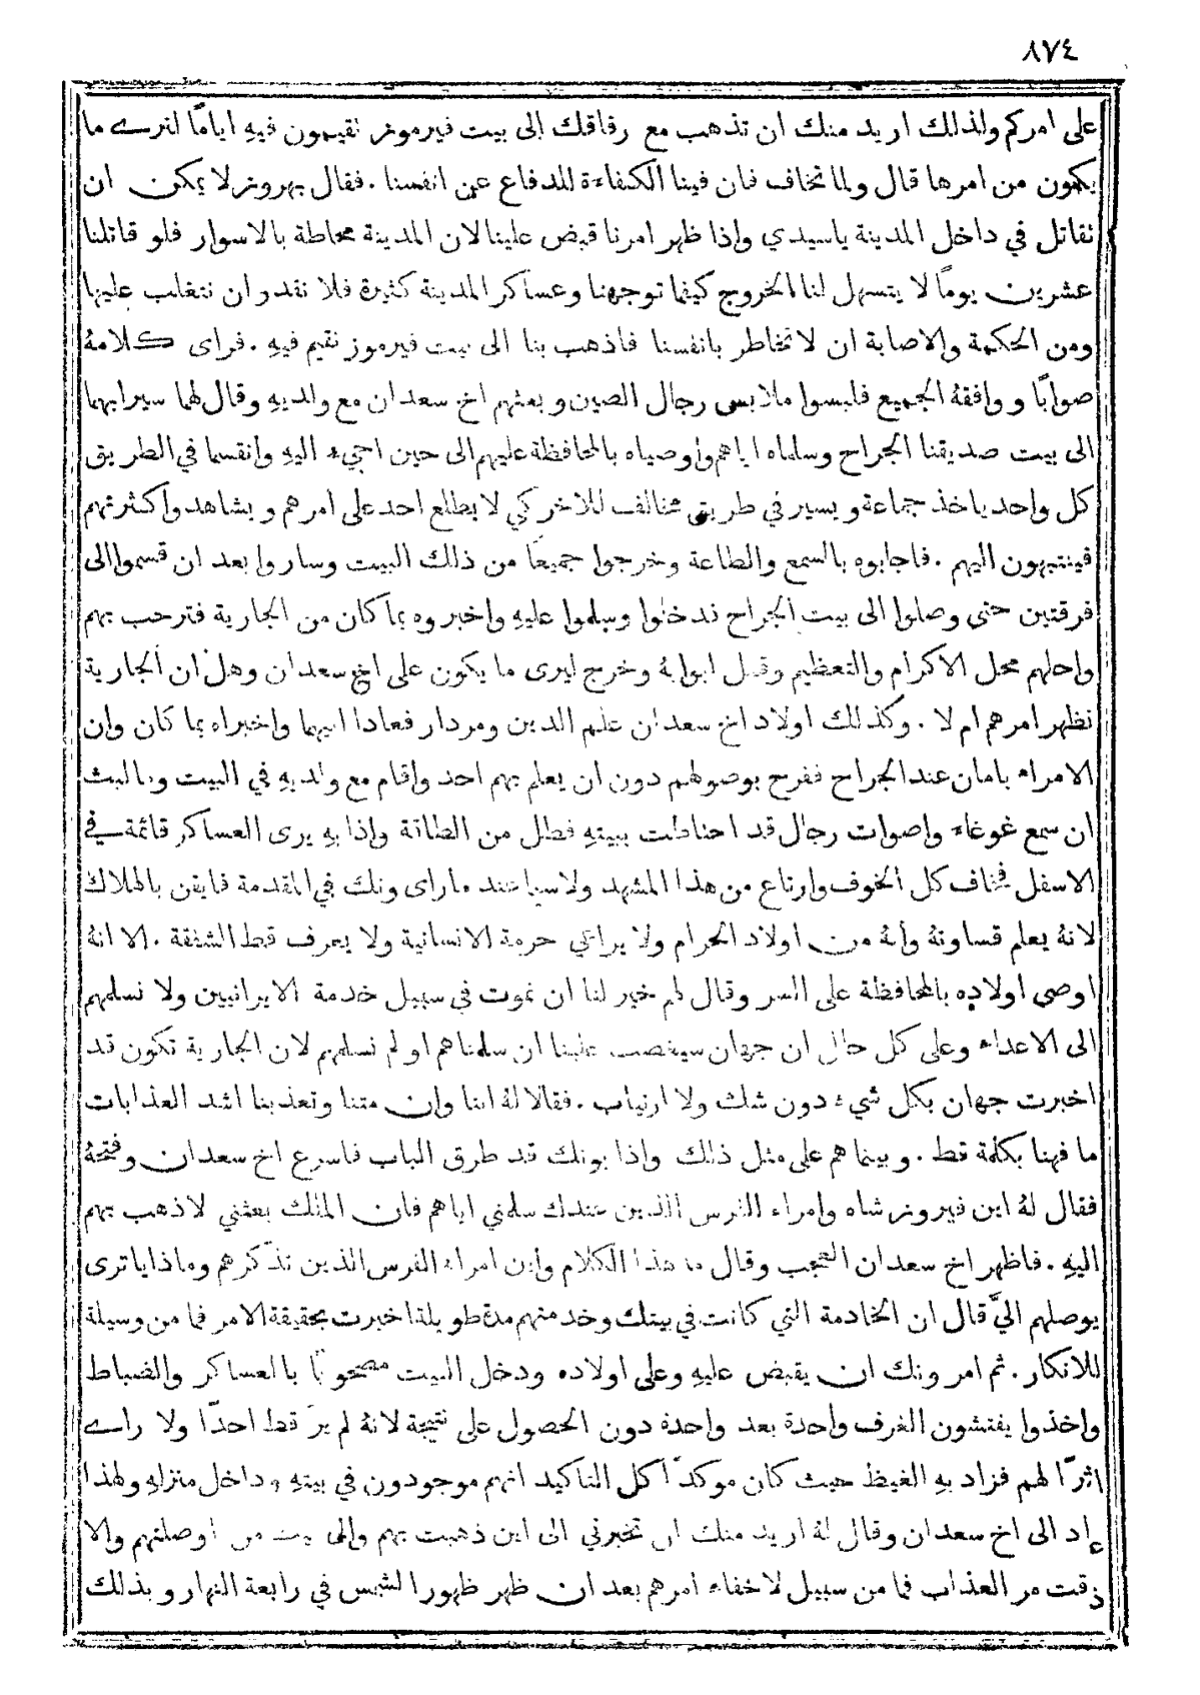 ٨٧٤
على امركم ولذلك اريد منك ان تذهب مع رفاقك الى بيت فيرموز تقيمون فيهِ اياماً لنرى ما
يكون من امرها قال ولما نخاف فان فينا الكفاءة للدفاع عن انفسنا . فقال بهروز لا يمكن ان
نقاتل في داخل المدينة ياسيدي واذا ظهر امرنا قبض علينا لان المدينة محاطة بالاسوار فلو قاتلنا
عشرين يوماً لا يتسهل لنا الخروج كيفما توجهنا وعساكر المدينة كثيرة فلا نقدر ان نتغلب عليها
ومن الحكمة والاصابة ان لا نخاطر بانفسنا فاذهب بنا الى بيت فيرموز نقيم فيهِ . فراى كلامهُ
صواباً ووافقهُ الجميع فلبسوا ملابس رجال الصين وبعثهم اخ سعدان مع ولديهِ وقال لهما سيرا بهما
الى بيت صديقنا الجراح وسلماه اياهم واوصياه بالمحافظة عليهم الى حين اجيء اليهِ وانقسما في الطريق
كل واحد ياخذ جماعة ويسير في طريق مخالف للاخر كي لا يطلع احد على امرهم ويشاهدوا كثرتهم
فينتبهون اليهم . فاجابوه بالسمع والطاعة وخرجوا جميعاً من ذلك البيت وساروا بعد ان قسموا الى
فرقتين حتى وصلوا الى بيت الجراح فدخلوا وسلموا عليهِ واخبروه بما كان من الجارية فترحب بهم
واحلهم محل الاكرام والتعظيم وقفل ابوابهُ وخرج ليرى ما يكون على اخ سعدان وهل ان الجارية
تظهر امرهم ام لا . وكذلك اولاد اخ سعدان علم الدين ومردار فعادا ابيهما واخبراه بما كان وان
الامراء بامان عند الجراح ففرح بوصولهم دون ان يعلم بهم احد واقام مع ولديهِ في البيت وما لبث
ان سمع غوغاء واصوات رجال قد احتاطت ببيتهِ فطل من الطاقة واذا بهِ يرى العساكر قائمة في
الاسفل فخاف كل الخوف وارتاع من هذا المشهد ولا سيما عند ما راى ونك في المقدمة فايقن بالهلاك
لانهُ يعلم قساوتهُ وانهُ من اولاد الحرام ولا يراعي حرمة الانسانية ولا يعرف قط الشفقة . الا انهُ
اوصى اولاده بالمحافظة على السر وقال لهم خير لنا ان نموت في سبيل خدمة الايرانيين ولا نسلمهم
الى الاعداء وعلى كل حال ان جهان سيغضب علينا ان سلمناهم او لم نسلمهم لان الجارية تكون قد
اخبرت جهان بكل شيء دون شك ولا ارتياب . فقالا لهُ اننا وان متنا وتعذبنا اشد العذابات
ما فهنا بكلمة قط . وبينما هم على مثل ذلك واذا بونك قد طرق الباب فاسرع اخ سعدان وفتحهُ
فقال لهُ اين فيروز شاه وامراء الفرس الذين عندك سلمني اياهم فان الملك بعثني لاذهب بهم
اليهِ . فاظهر اخ سعدان التعجب وقال ما هذا الكلام واين امراء الفرس الذين تذكرهم وماذا ياترى
يوصلهم اليَّ قال ان الخادمة التي كانت في بيتك وخدمتهم مدة طويلة اخبرت بحقيقة الامر فما من وسيلة
للانكار . ثم امر ونك ان يقبض عليهِ وعلى اولاده ودخل البيت مصحوباً بالعساكر والضباط
واخذوا يفتشون الغرف واحدة بعد واحدة دون الحصول على نتيجة لانهُ لم يرَ قط احداً ولا راى
اثراً لهم فزاد بهِ الغيظ حيث كان موكداً كل التاكيد انهم موجودون في بيتهِ وداخل منزلهِ ولهذا
عاد الى اخ سعدان وقال لهُ اريد منك ان تخبرني الى اين ذهبت بهم والى بيت من اوصلتهم والا
ذقت مر العذاب فما من سبيل لاخفاء امرهم بعد ان ظهر ظهور الشمس في رابعة النهار وبذلك